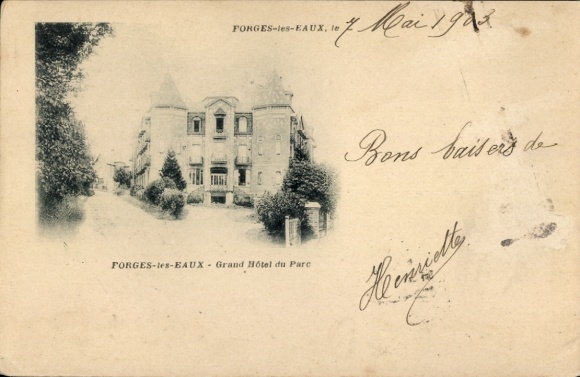 FORGES-les-EAUX, le 7 Mai 1903
Bons baisers de
Henriette
FORGES-les-EAUX - Grand Hôtel du Parc